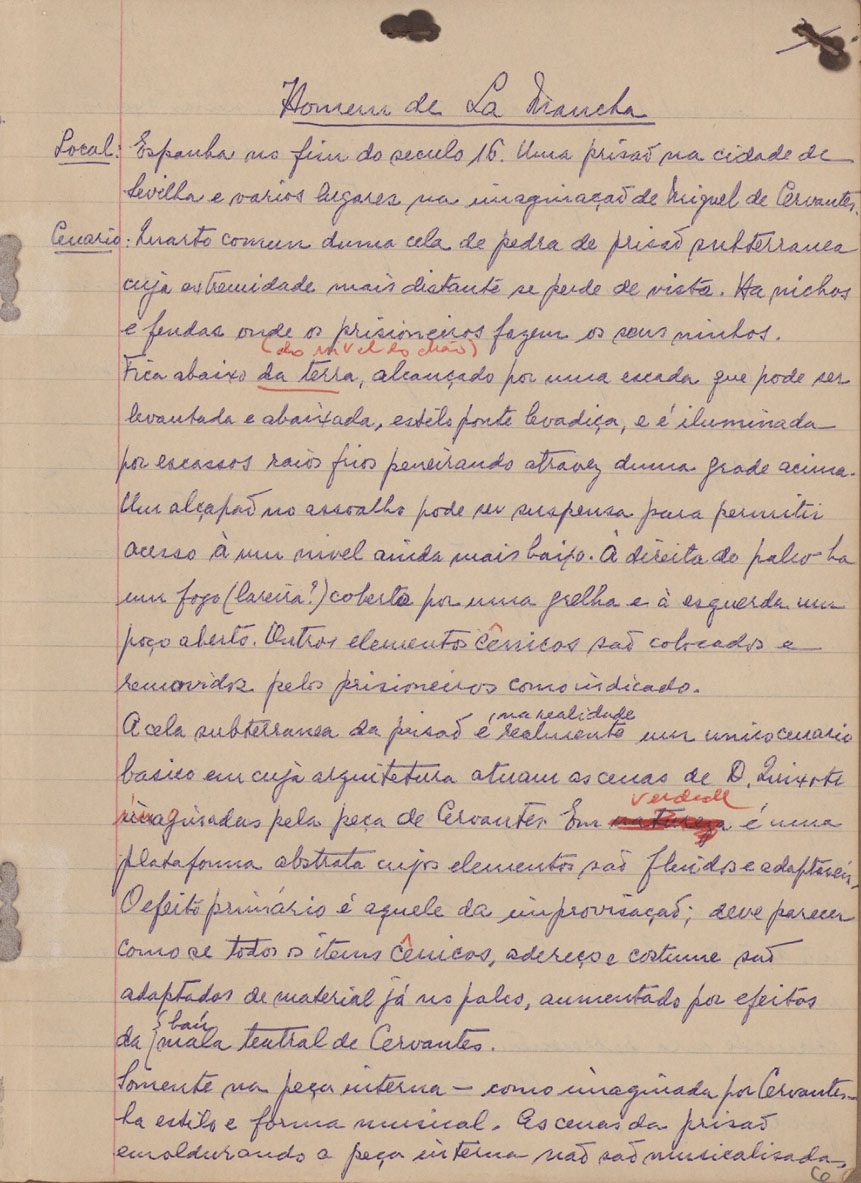 Homem de La Mancha
Local: Espanha no fim do seculo 16. Uma prisaõ na cidade de
Sevilha e varios lugares na imaginaçaõ de Miguel de Cervantes.
Cenario: Quarto comun duma cela de pedra de prisaõ subterranea
cuja extremidade mais distante se perde de vista. Ha nichos
e fendas onde os prisioneiros fazem os seus ninhos.
(do nivel do chão)
Fica abaixo da terra, alcançado por uma escada que pode ser
levantada e abaixada, estilo ponte levadiça, e é iluminada
por escassos raios frios peneirando atravez duma grade acima.
Um alçapaõ no assoalho pode ser suspensa para permitir
acesso à um nivel ainda mais baixo. À direita do palco ha
um fogo (lareira?) coberto por uma grelha e à esquerda um
poço aberto. Outros elementos cênicos saõ colocados e
removidos pelos prisioneiros como indicado.
na realidade
A cela subterranea da prisaõ é realmente um unico cenario
basico em cuja arquitetura atuam as cenas de D. Quixote
verdade
imaginadas pela peça de Cervantes. Em natureza é uma
plataforma abstrata cujos elementos saõ fluidos e adaptaveis.
O efeito primário é aquele da improvisaçaõ; deve parecer
como se todos os items cênicos, adereço e costume saõ
adaptados de material já no palco, aumentado por efeitos
baú
da mala teatral de Cervantes.
Somente na peça interna — como imaginada por Cervantes —
ha estilo e forma musical. As cenas da prisaõ
emoldurando a peça interna naõ saõ musicalisadas.